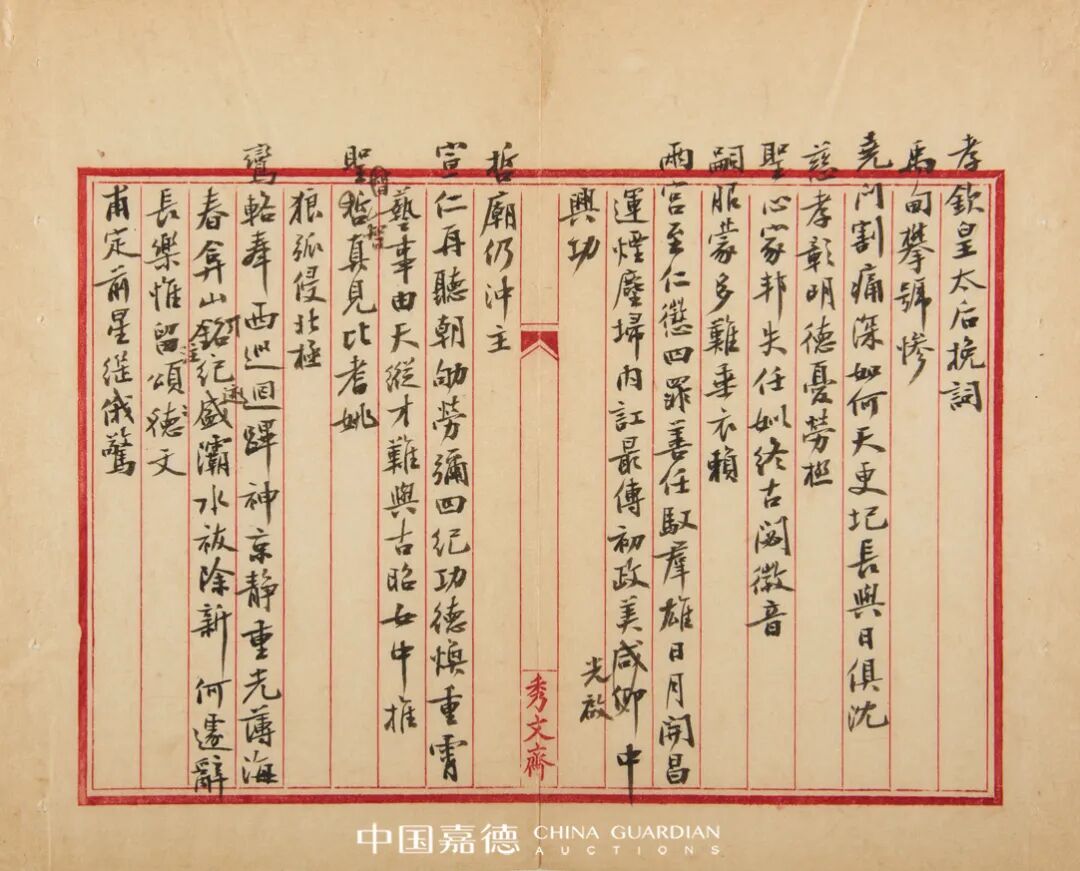 孝欽皇太后挽詞
禹甸攀號慘
堯門割痛深如何天更圮長與日俱沈
慈孝彰明德憂勞極
聖心家邦失任姒終古閟徽音
嗣服蒙多難垂衣賴
兩宮至仁懲四罪善任馭羣雄日月開昌
運煙塵埽內訌最傳初政美咸仰中
光啟
興功
哲廟仍沖主
宣仁再聽朝劬勞彌四紀功德煥重霄
藝事由天縱才難與古昭女中推
聖哲真見比耆姚
狼弧侵北極
鸞輅奉西巡迴蹕神京靜重光薄海
春弇山銘紀盛灞水祓除新何遽辭
長樂惟留頌德文
甫定前星継俄驚
秀文齋
中国嘉德 CHINA GUARDIAN
AUCTIONS